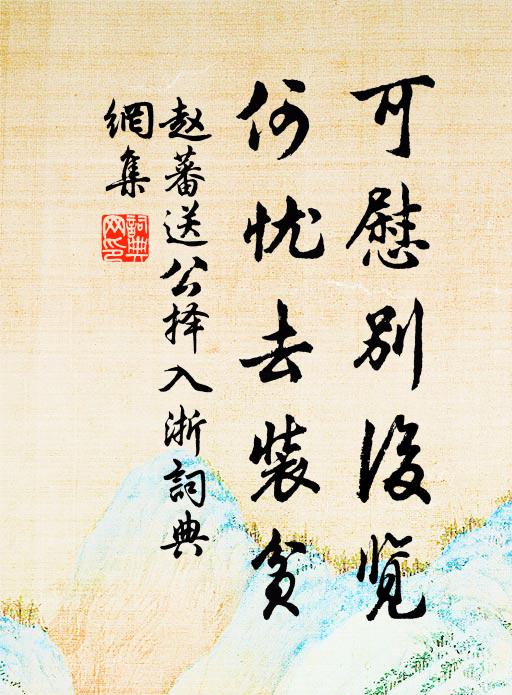 可慰别后览
何忧去装贫
赵蕃送公择入浙詞典
網集
詞典网印